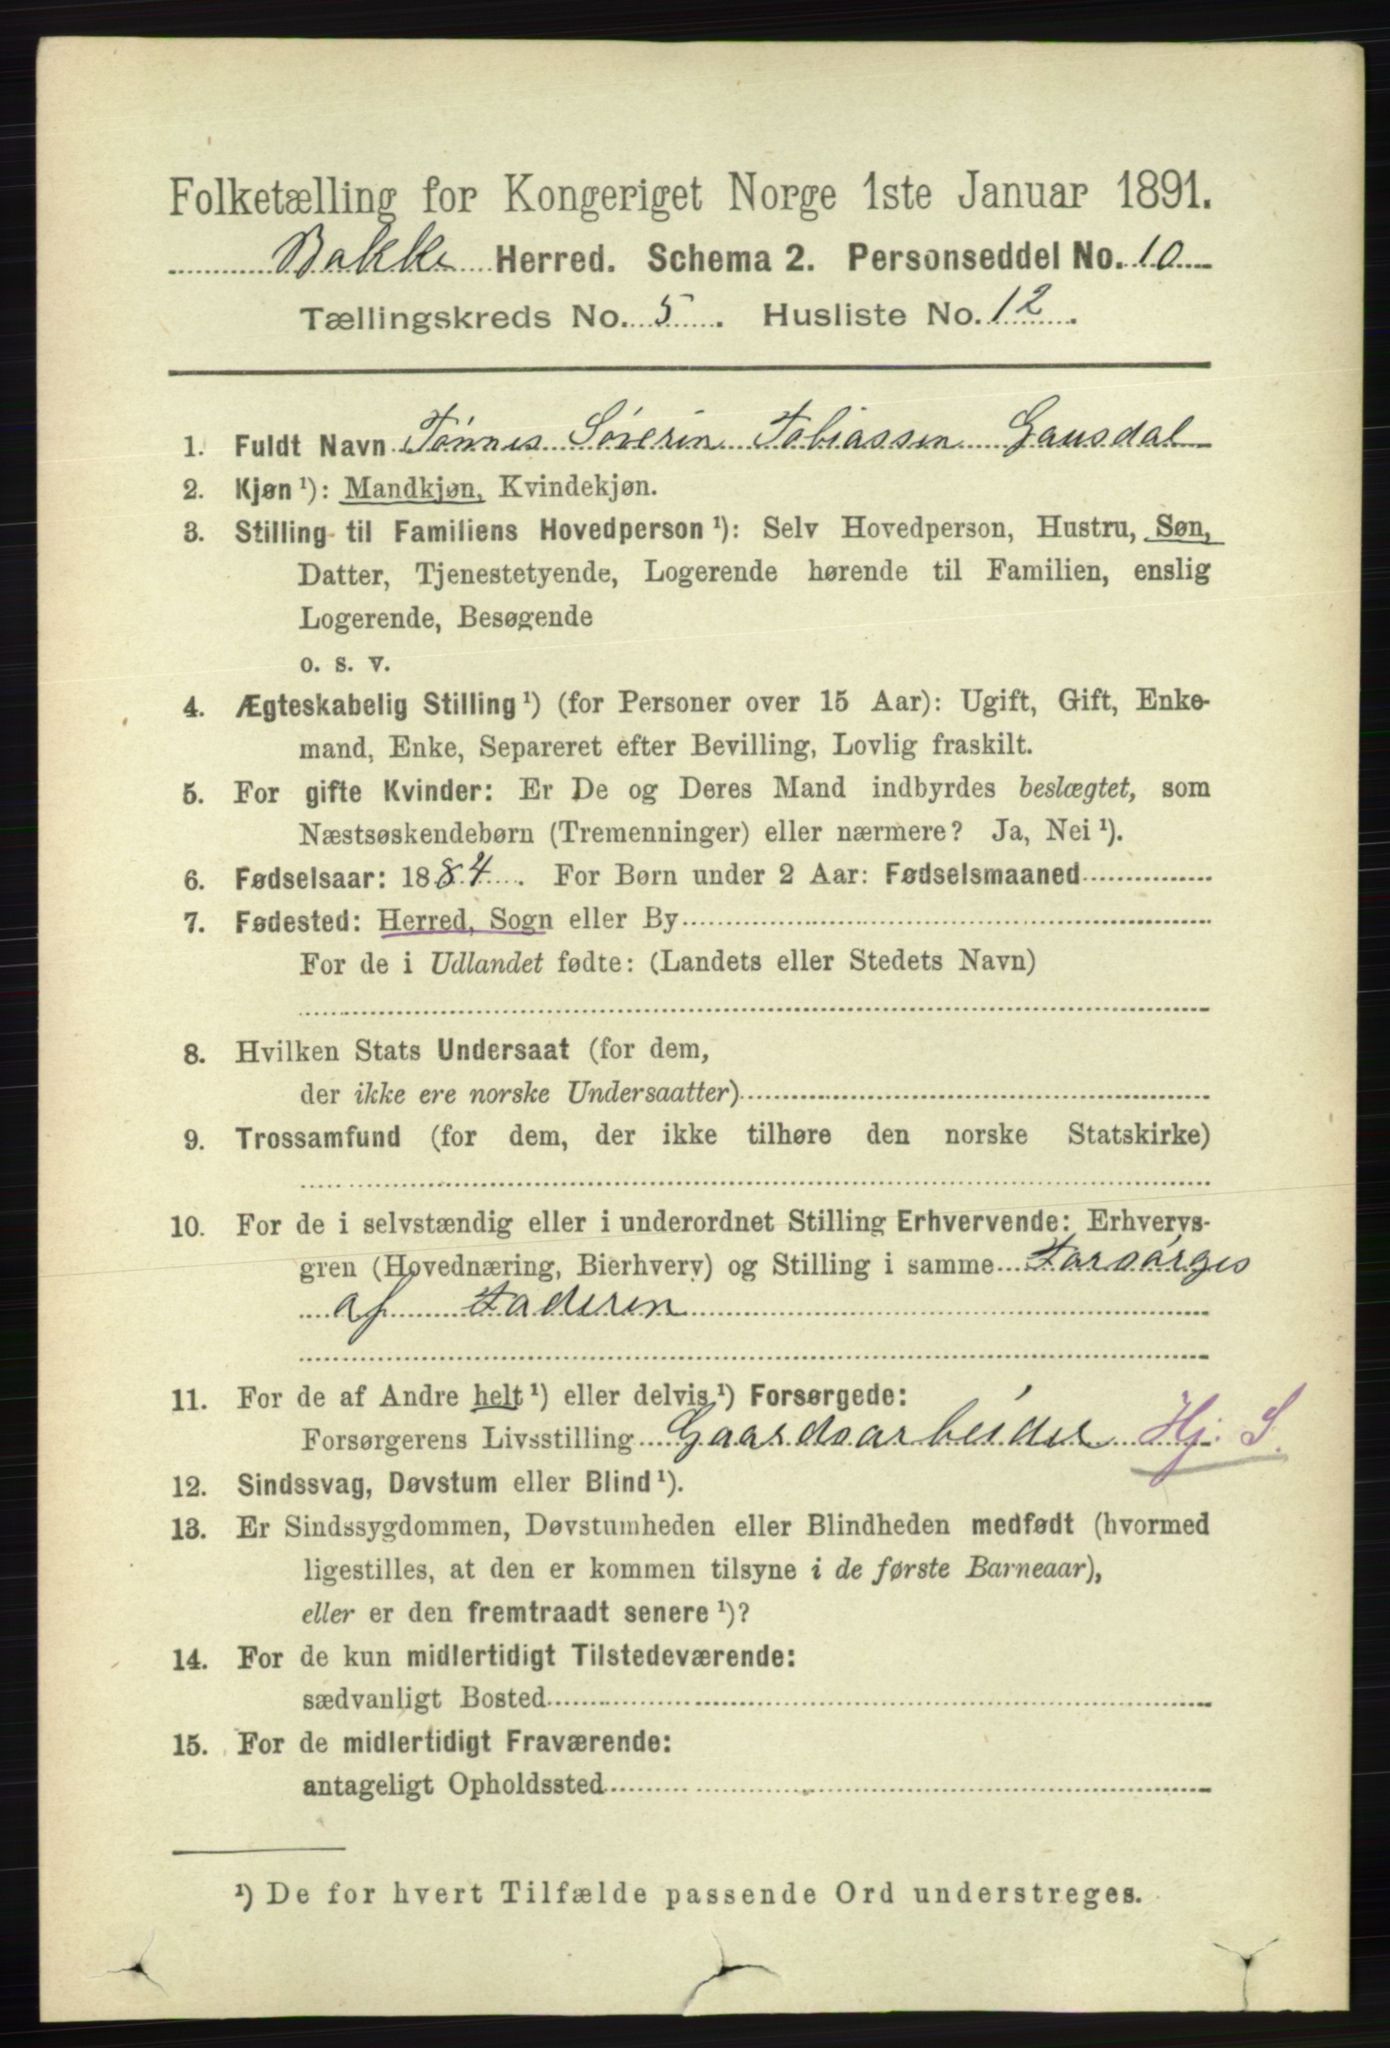 Folketælling for Kongeriget Norge 1ste Januar 1891.
Bakke Herred. Schema 2. Personseddel No. 10
Tællingskreds No. 5. Husliste No. 12.
1. Fuldt Navn Tønnes Søverin Tobiassen Gausdal
2. Kjøn ¹): Mandkjøn, Kvindekjøn.
3. Stilling til Familiens Hovedperson ¹): Selv Hovedperson, Hustru, Søn,
Datter, Tjenestetyende, Logerende hørende til Familien, enslig
Logerende, Besøgende
o. s. v.
4. Ægteskabelig Stilling ¹) (for Personer over 15 Aar): Ugift, Gift, Enke-
mand, Enke, Separeret efter Bevilling, Lovlig fraskilt.
5. For gifte Kvinder: Er De og Deres Mand indbyrdes beslægtet, som
Næstsøskendebørn (Tremenninger) eller nærmere? Ja, Nei ¹).
6. Fødselsaar: 1884. For Børn under 2 Aar: Fødselsmaaned
7. Fødested: Herred, Sogn eller By
For de i Udlandet fødte: (Landets eller Stedets Navn)
8. Hvilken Stats Undersaat (for dem,
der ikke ere norske Undersaatter)
9. Trossamfund (for dem, der ikke tilhøre den norske Statskirke)
10. For de i selvstændig eller i underordnet Stilling Erhvervende: Erhvervs-
gren (Hovednæring, Bierhverv) og Stilling i samme Forsørges
af Faderen
11. For de af Andre helt ¹) eller delvis ¹) Forsørgede:
Forsørgerens Livsstilling Gaardsarbeider Hj. S.
12. Sindssvag, Døvstum eller Blind ¹).
13. Er Sindssygdommen, Døvstumheden eller Blindheden medfødt (hvormed
ligestilles, at den er kommen tilsyne i de første Barneaar),
eller er den fremtraadt senere ¹)?
14. For de kun midlertidigt Tilstedeværende:
sædvanligt Bosted
15. For de midlertidigt Fraværende:
antageligt Opholdssted
¹) De for hvert Tilfælde passende Ord understreges.